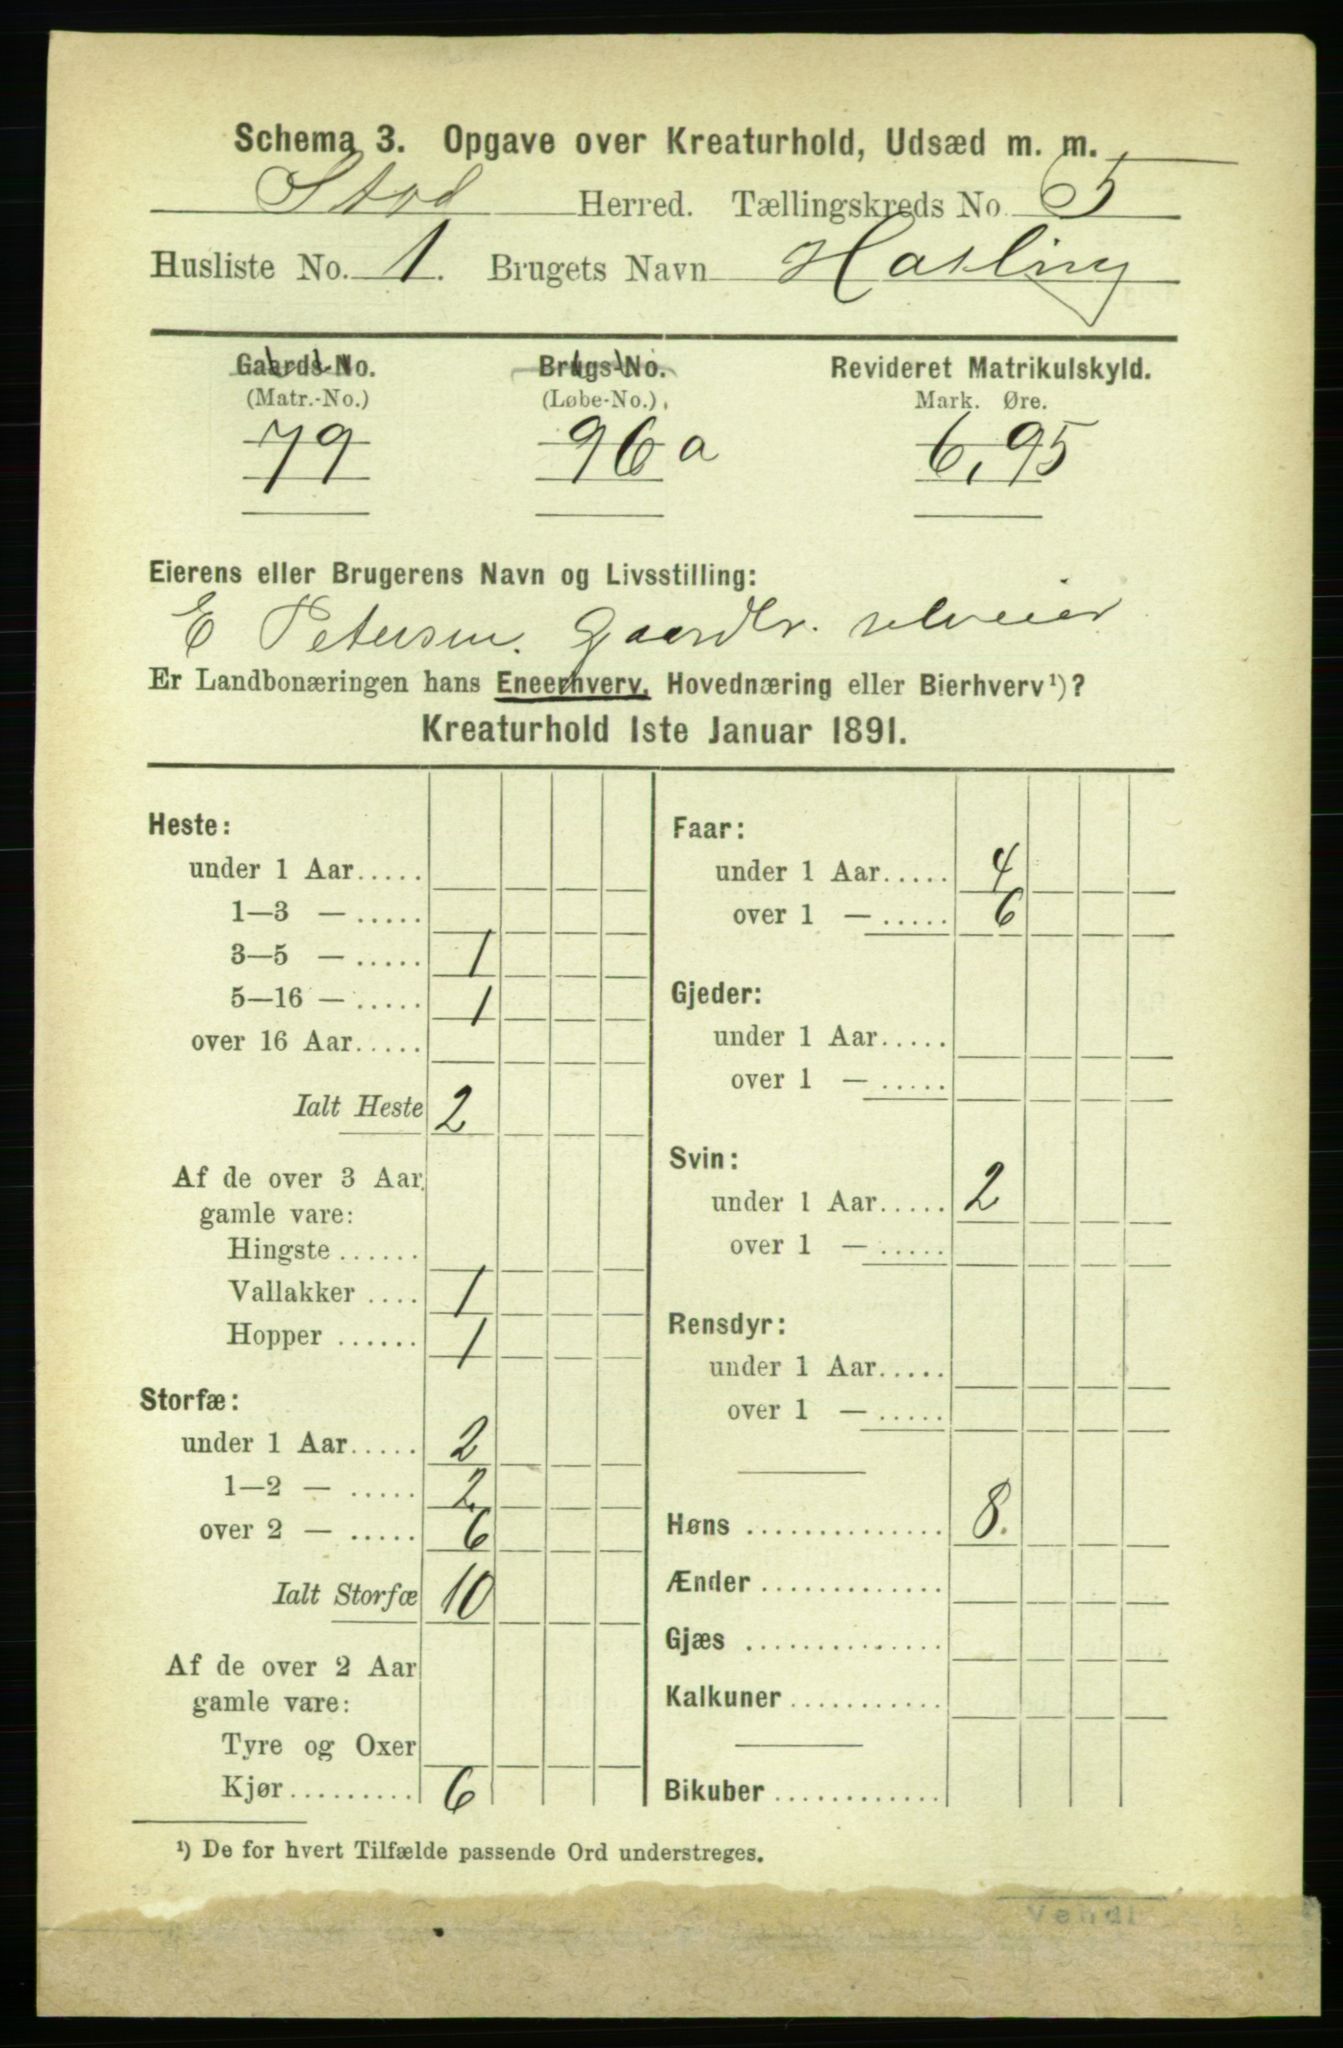 Schema 3. Opgave over Kreaturhold, Udsæd m. m.
Stod Herred. Tællingskreds No. 5
Husliste No. 1. Brugets Navn Hasling
Gaards-No. Brugs-No. Revideret Matrikulskyld.
(Matr.-No.) (Løbe-No.) Mark. Øre.
79 96 a 6,95
Eierens eller Brugerens Navn og Livsstilling:
E Petersen. Gaardbr. selveier
Er Landbonæringen hans Eneerhverv, Hovednæring eller Bierhverv¹)?
Kreaturhold 1ste Januar 1891.
Heste:
under 1 Aar.....
1—3 — .....
3—5 — ..... 1
5—16 — ..... 1
over 16 Aar.....
Ialt Heste 2
Af de over 3 Aar
gamle vare:
Hingste ......
Vallakker .... 1
Hopper ...... 1
Storfæ:
under 1 Aar..... 2
1—2 — ..... 2
over 2 — ..... 6
Ialt Storfæ 10
Af de over 2 Aar
gamle vare:
Tyre og Oxer
Kjør......... 6
Faar:
under 1 Aar..... 4
over 1 — ..... 6
Gjeder:
under 1 Aar.....
over 1 — .....
Svin:
under 1 Aar..... 2
over 1 — .....
Rensdyr:
under 1 Aar.....
over 1 — .....
Høns .............. 8.
Ænder .............
Gjæs ..............
Kalkuner ...........
Bikuber ............
¹) De for hvert Tilfælde passende Ord understreges.
Vendl